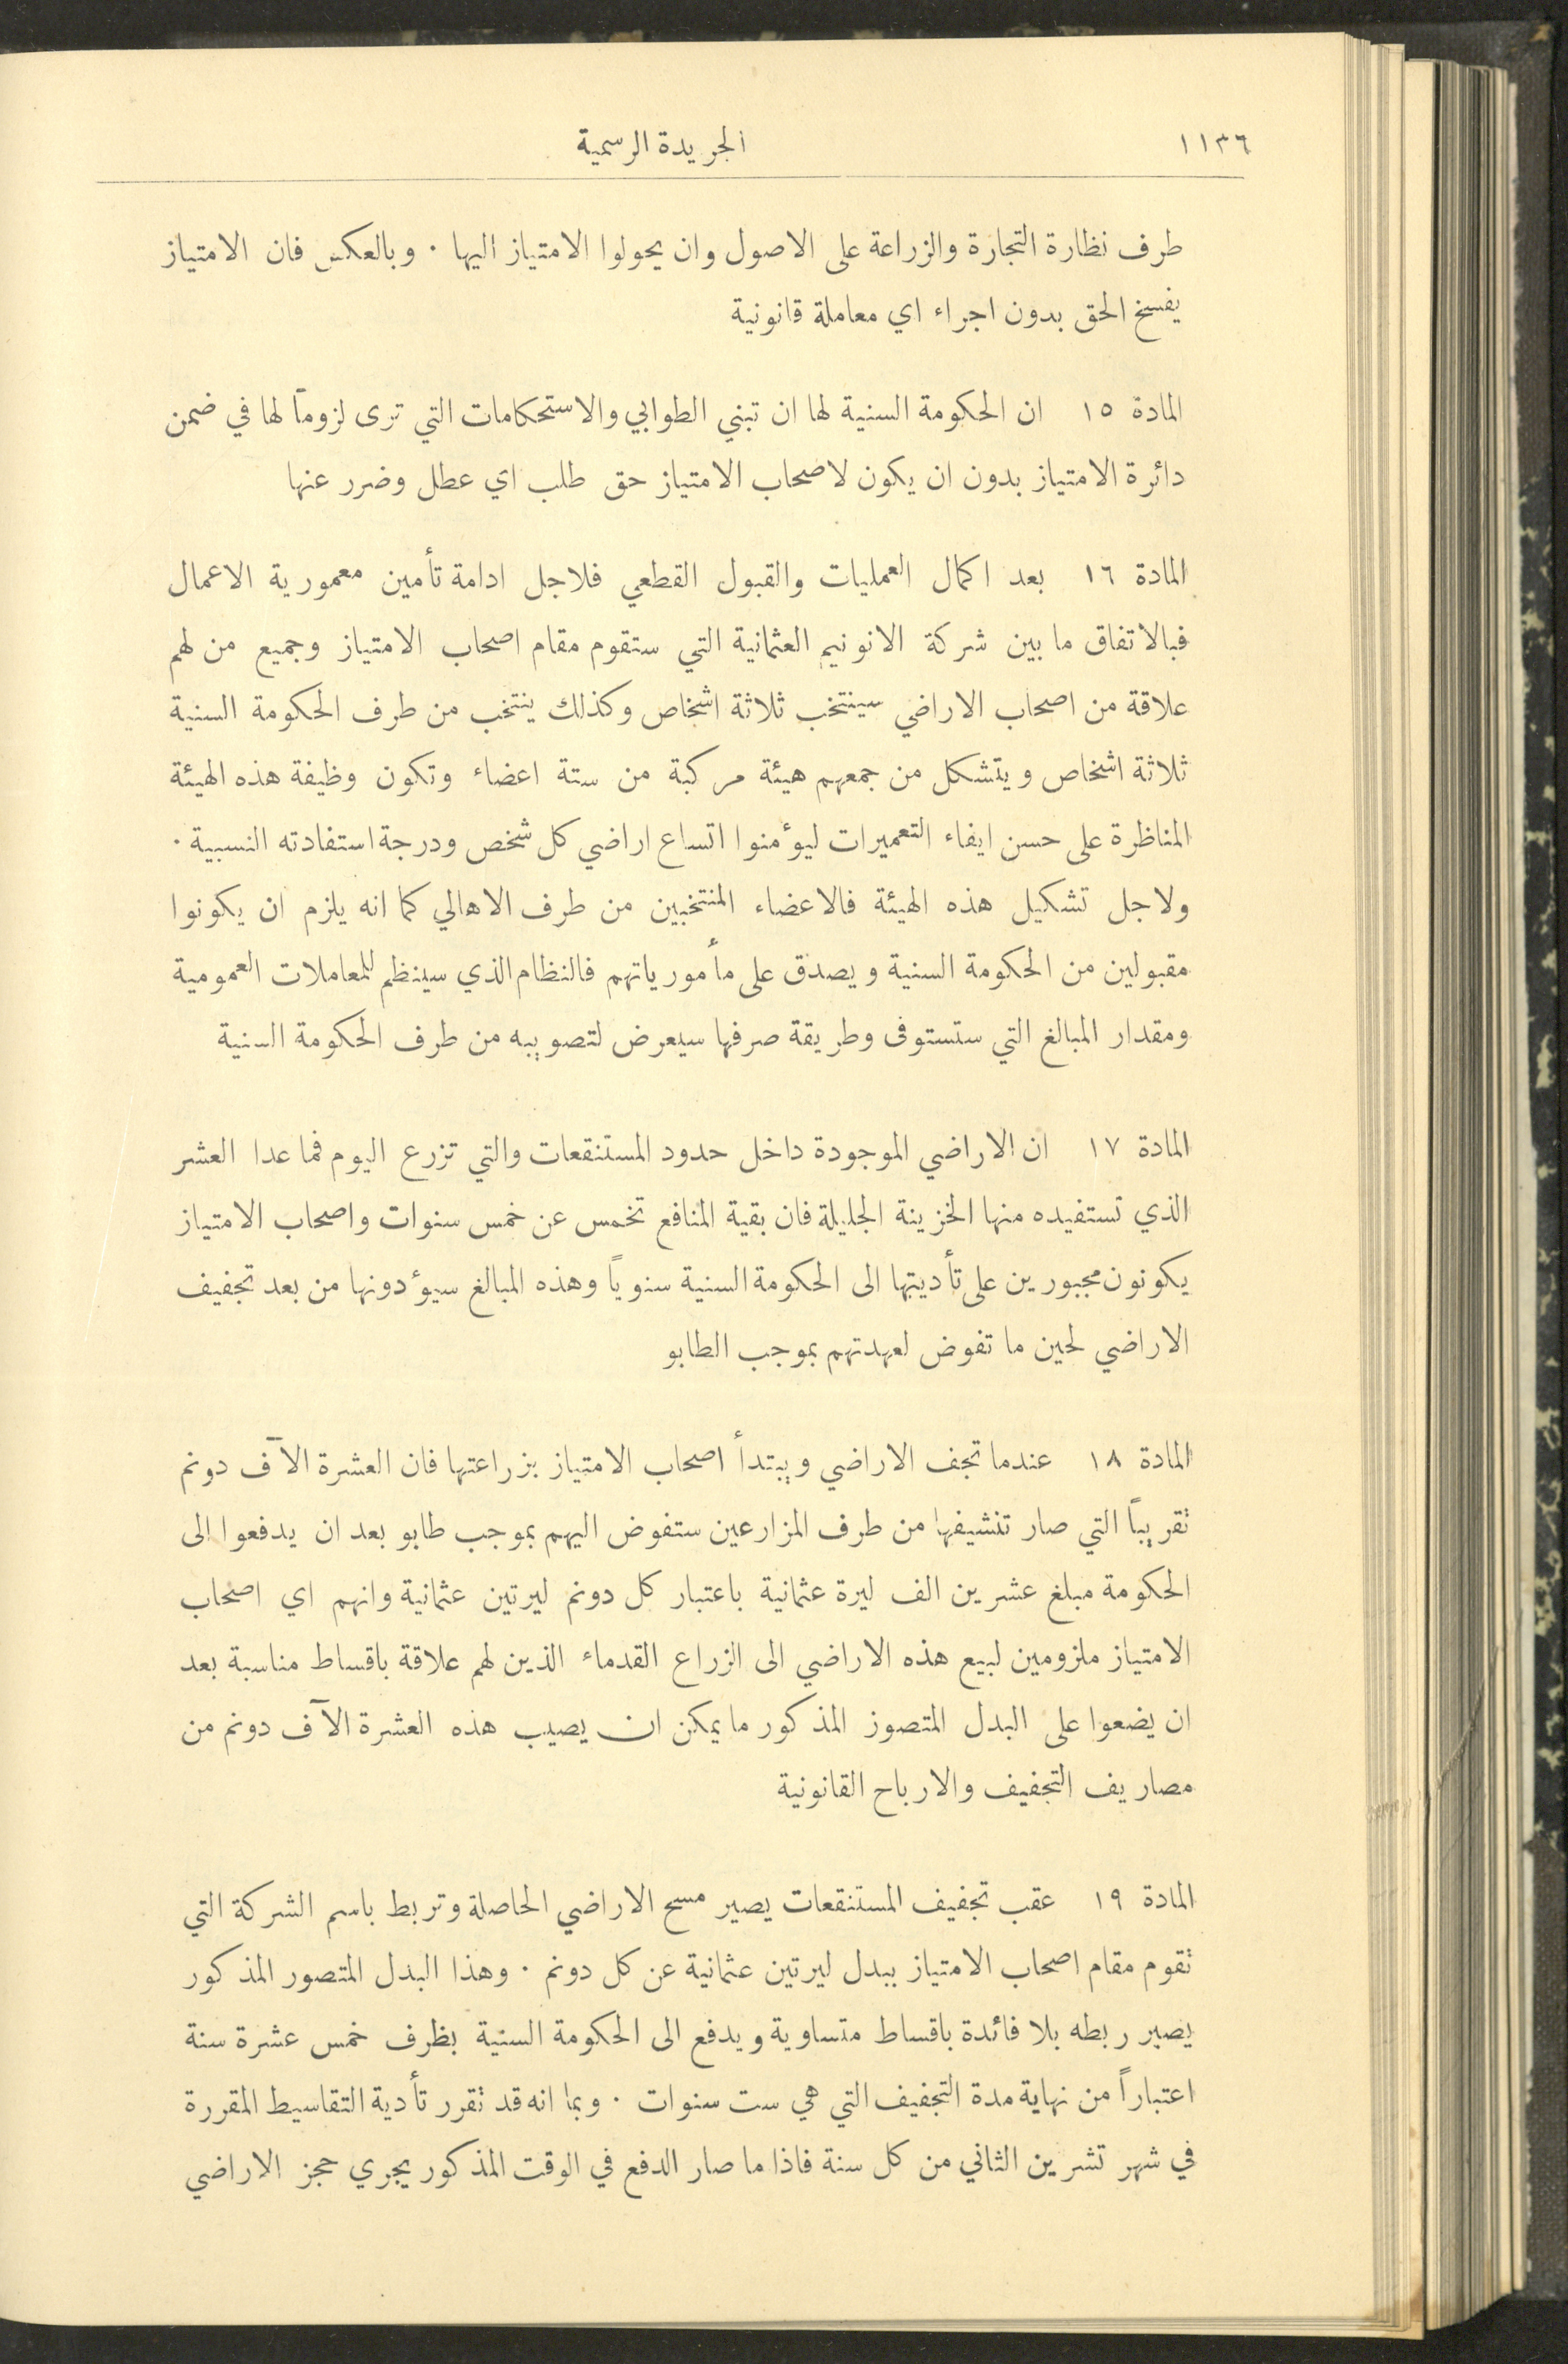 ١١٣٦
الجريدة الرسمية
طرف نظارة التجارة والزراعة على الاصول وان يحولوا الامتياز اليها . وبالعكس فان الامتياز
يفسخ الحق بدون اجراء اي معاملة قانونية
المادة ١٥ ان الحكومة السنية لها ان تبني الطوابي والاستحكامات التي ترى لزوماً لها في ضمن
دائرة الامتياز بدون ان يكون لاصحاب الامتياز حق طلب اي عطل وضرر عنها
المادة ١٦ بعد اكمال العمليات والقبول القطعي فلاجل ادامة تأمين معمورية الاعمال
فبالاتفاق ما بين شركة الانونيم العثمانية التي ستقوم مقام اصحاب الامتياز وجميع من لهم
علاقة من اصحاب الاراضي سينتخب ثلاثة اشخاص وكذلك ينتخب من طرف الحكومة السنية
ثلاثة اشخاص ويتشكل من جمعهم هيئة مركبة من ستة اعضاء وتكون وظيفة هذه الهيئة
المناظرة على حسن ايفاء التعميرات ليؤمنوا اتساع اراضي كل شخص ودرجة استفادته النسبية .
ولاجل تشكيل هذه الهيئة فالاعضاء المنتخبين من طرف الاهالي كما انه يلزم ان يكونوا
مقبولين من الحكومة السنية ويصدق على مأمورياتهم فالنظام الذي سينظم للمعاملات العمومية
ومقدار المبالغ التي ستستوفى وطريقة صرفها سيعرض لتصويبه من طرف الحكومة السنية
المادة ١٧ ان الاراضي الموجودة داخل حدود المستنقعات والتي تزرع اليوم فما عدا العشر
الذي تستفيده منها الخزينة الجليلة فان بقية المنافع تخمس عن خمس سنوات واصحاب الامتياز
يكونون مجبورين على تأديتها الى الحكومة السنية سنوياً وهذه المبالغ سيؤدونها من بعد تجفيف
الاراضي لحين ما تفوض لعهدتهم بموجب الطابو
المادة ١٨ عندما تجف الاراضي ويبتدأ اصحاب الامتياز بزراعتها فان العشرة الآف دونم
تقريباً التي صار تنشيفها من طرف المزارعين ستفوض اليهم بموجب طابو بعد ان يدفعوا الى
الحكومة مبلغ عشرين الف ليرة عثمانية باعتبار كل دونم ليرتين عثمانية وانهم اي اصحاب
الامتياز ملزومين لبيع هذه الاراضي الى الزراع القدماء الذين لهم علاقة باقساط مناسبة بعد
ان يضعوا على البدل المتصوز المذكور ما يمكن ان يصيب هذه العشرة الآف دونم من
مصاريف التجفيف والارباح القانونية
المادة ١٩ عقب تجفيف المستنقعات يصير مسح الاراضي الحاصلة وتربط باسم الشركة التي
تقوم مقام اصحاب الامتياز ببدل ليرتين عثمانية عن كل دونم . وهذا البدل المتصور المذكور
يصير ربطه بلا فائدة باقساط متساوية ويدفع الى الحكومة السنية بظرف خمس عشرة سنة
اعتباراً من نهاية مدة التجفيف التي هي ست سنوات . وبما انه قد تقرر تأدية التقاسيط المقررة
في شهر تشرين الثاني من كل سنة فاذا ما صار الدفع في الوقت المذكور يجري حجز الاراضي